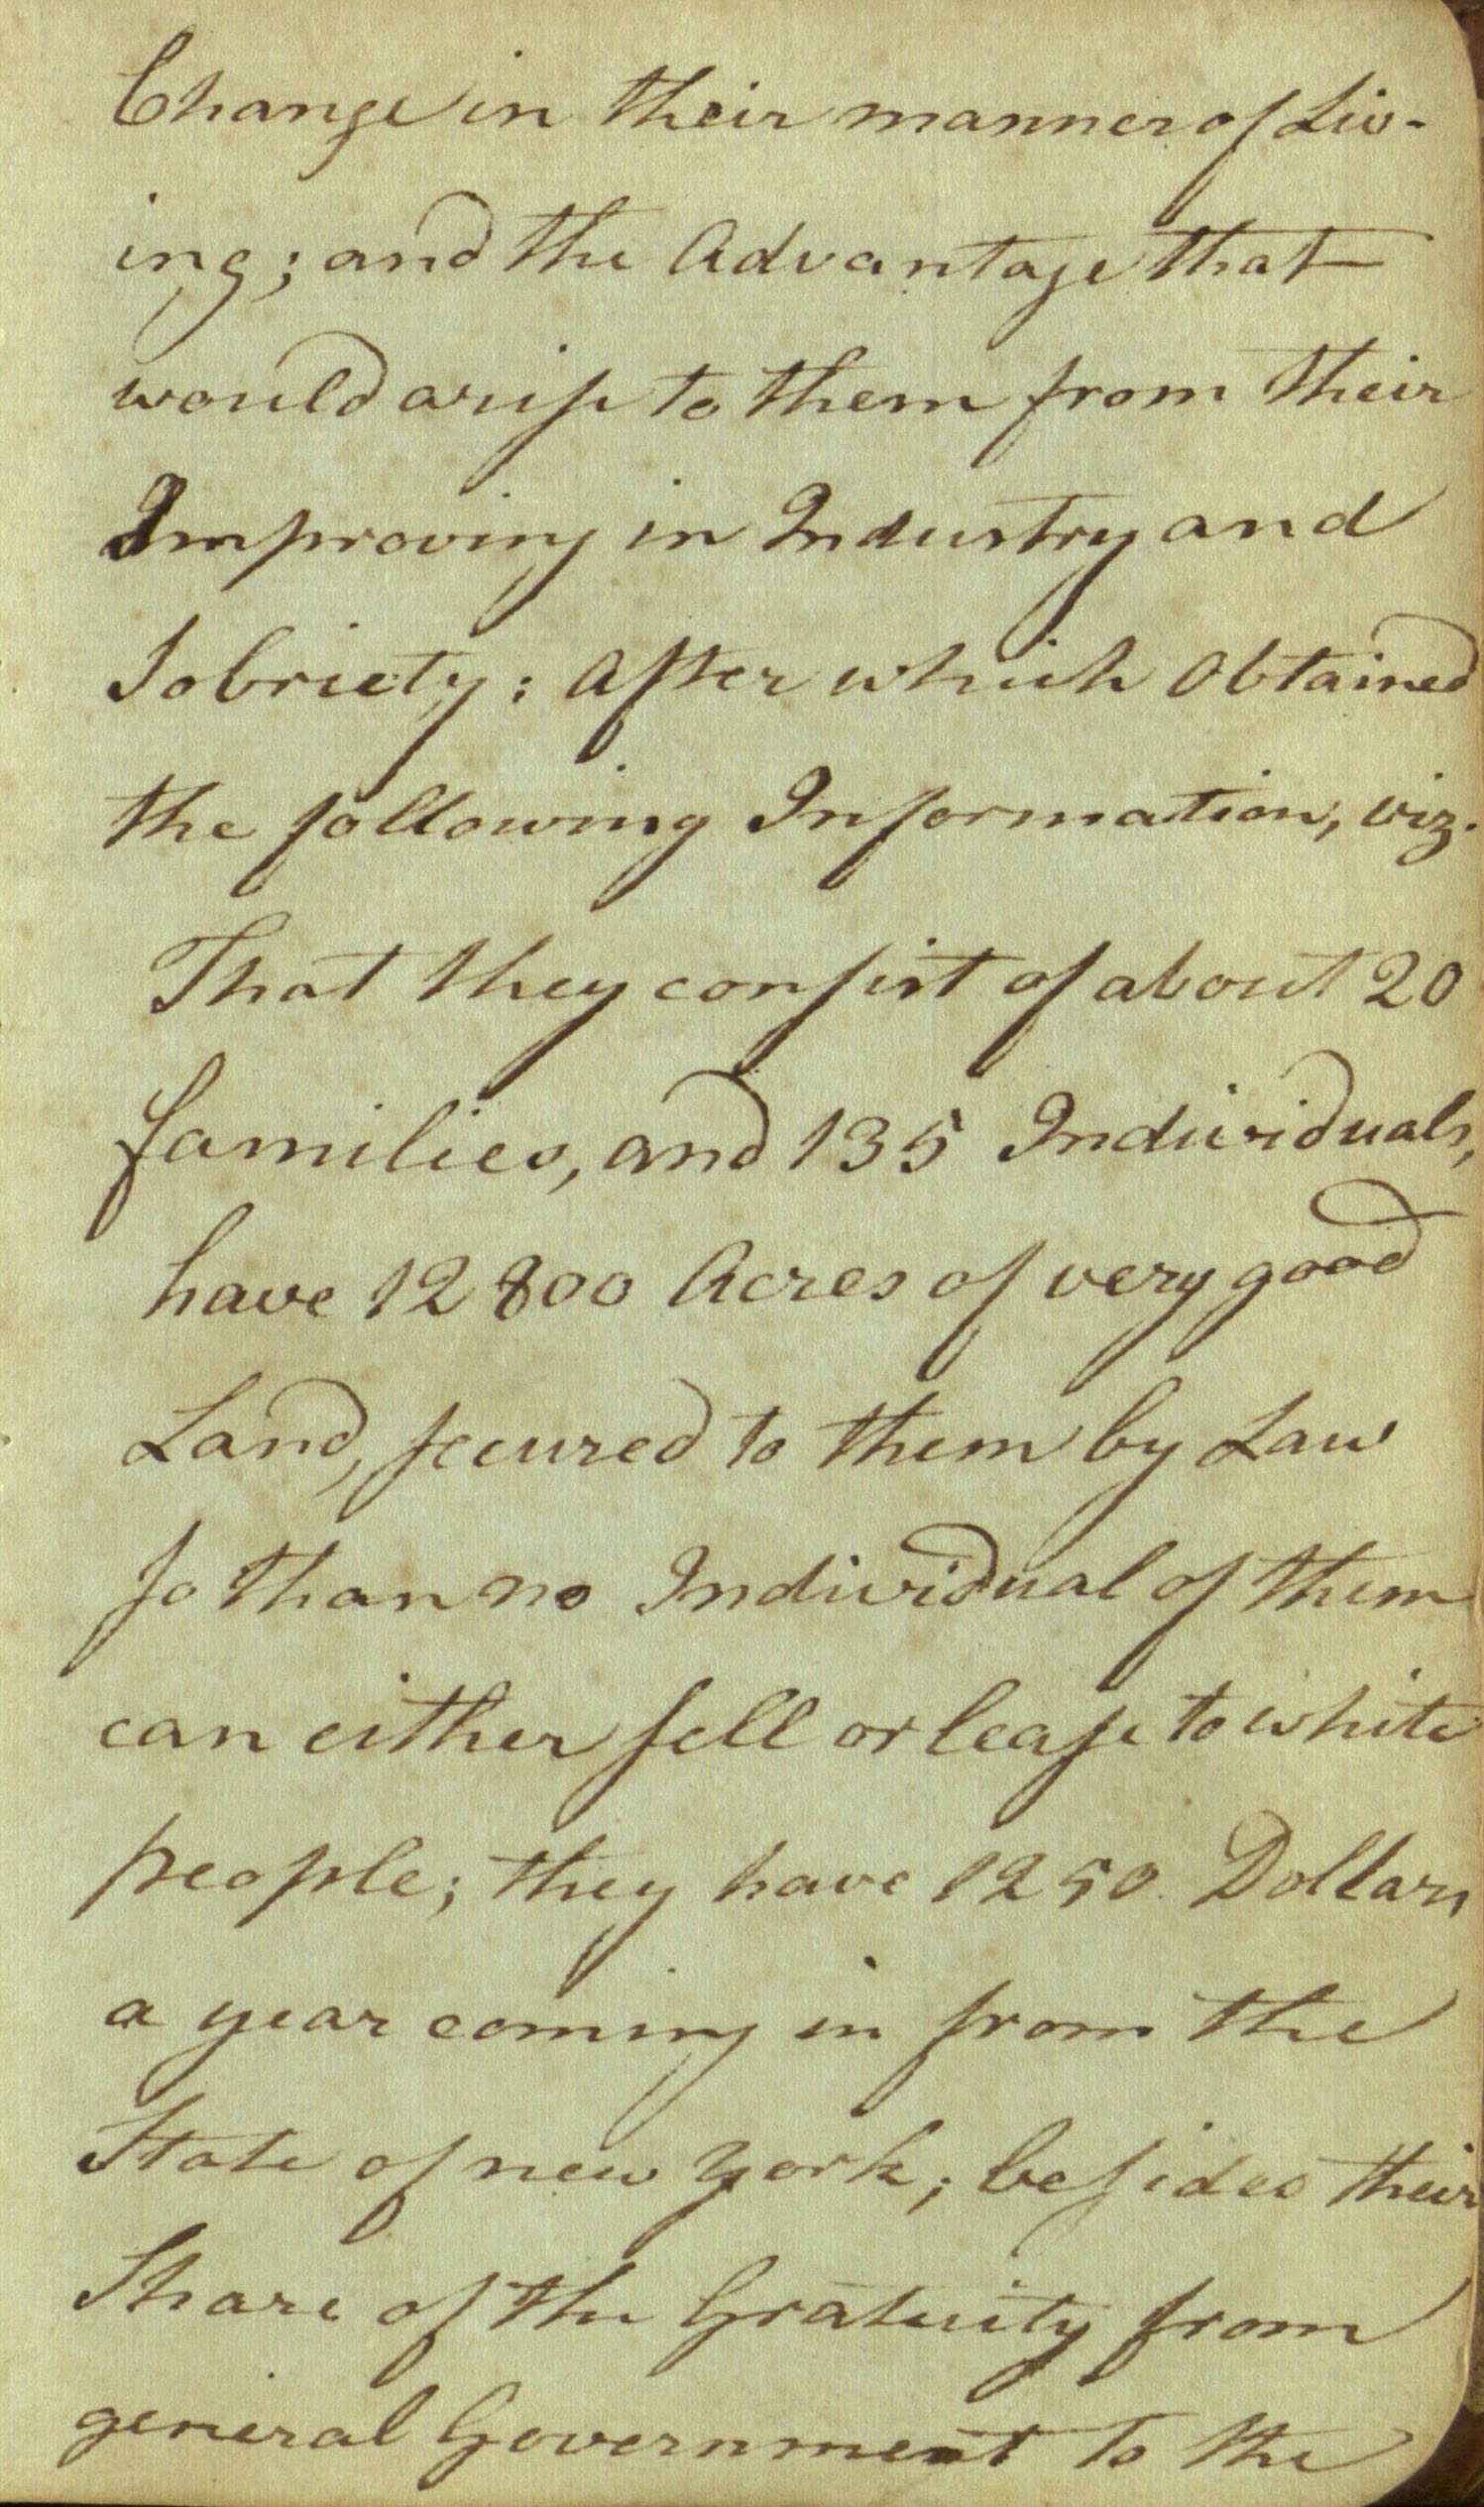 Change in their manner of Liv-
ing; and the Advantage that
would arise to them from their
Improving in Industry and
Sobriety: After which Obtained
the following Information, viz.
That they consist of about 20
families, and 135 Individuals,
have 12800 Acres of very good
Land, secured to them by Law
so than no Individual of them
can either sell or lease to white
people; they have 1250 Dollars
a year coming in from the
State of new York; besides their
Share of the Gratuity from
general Government to the